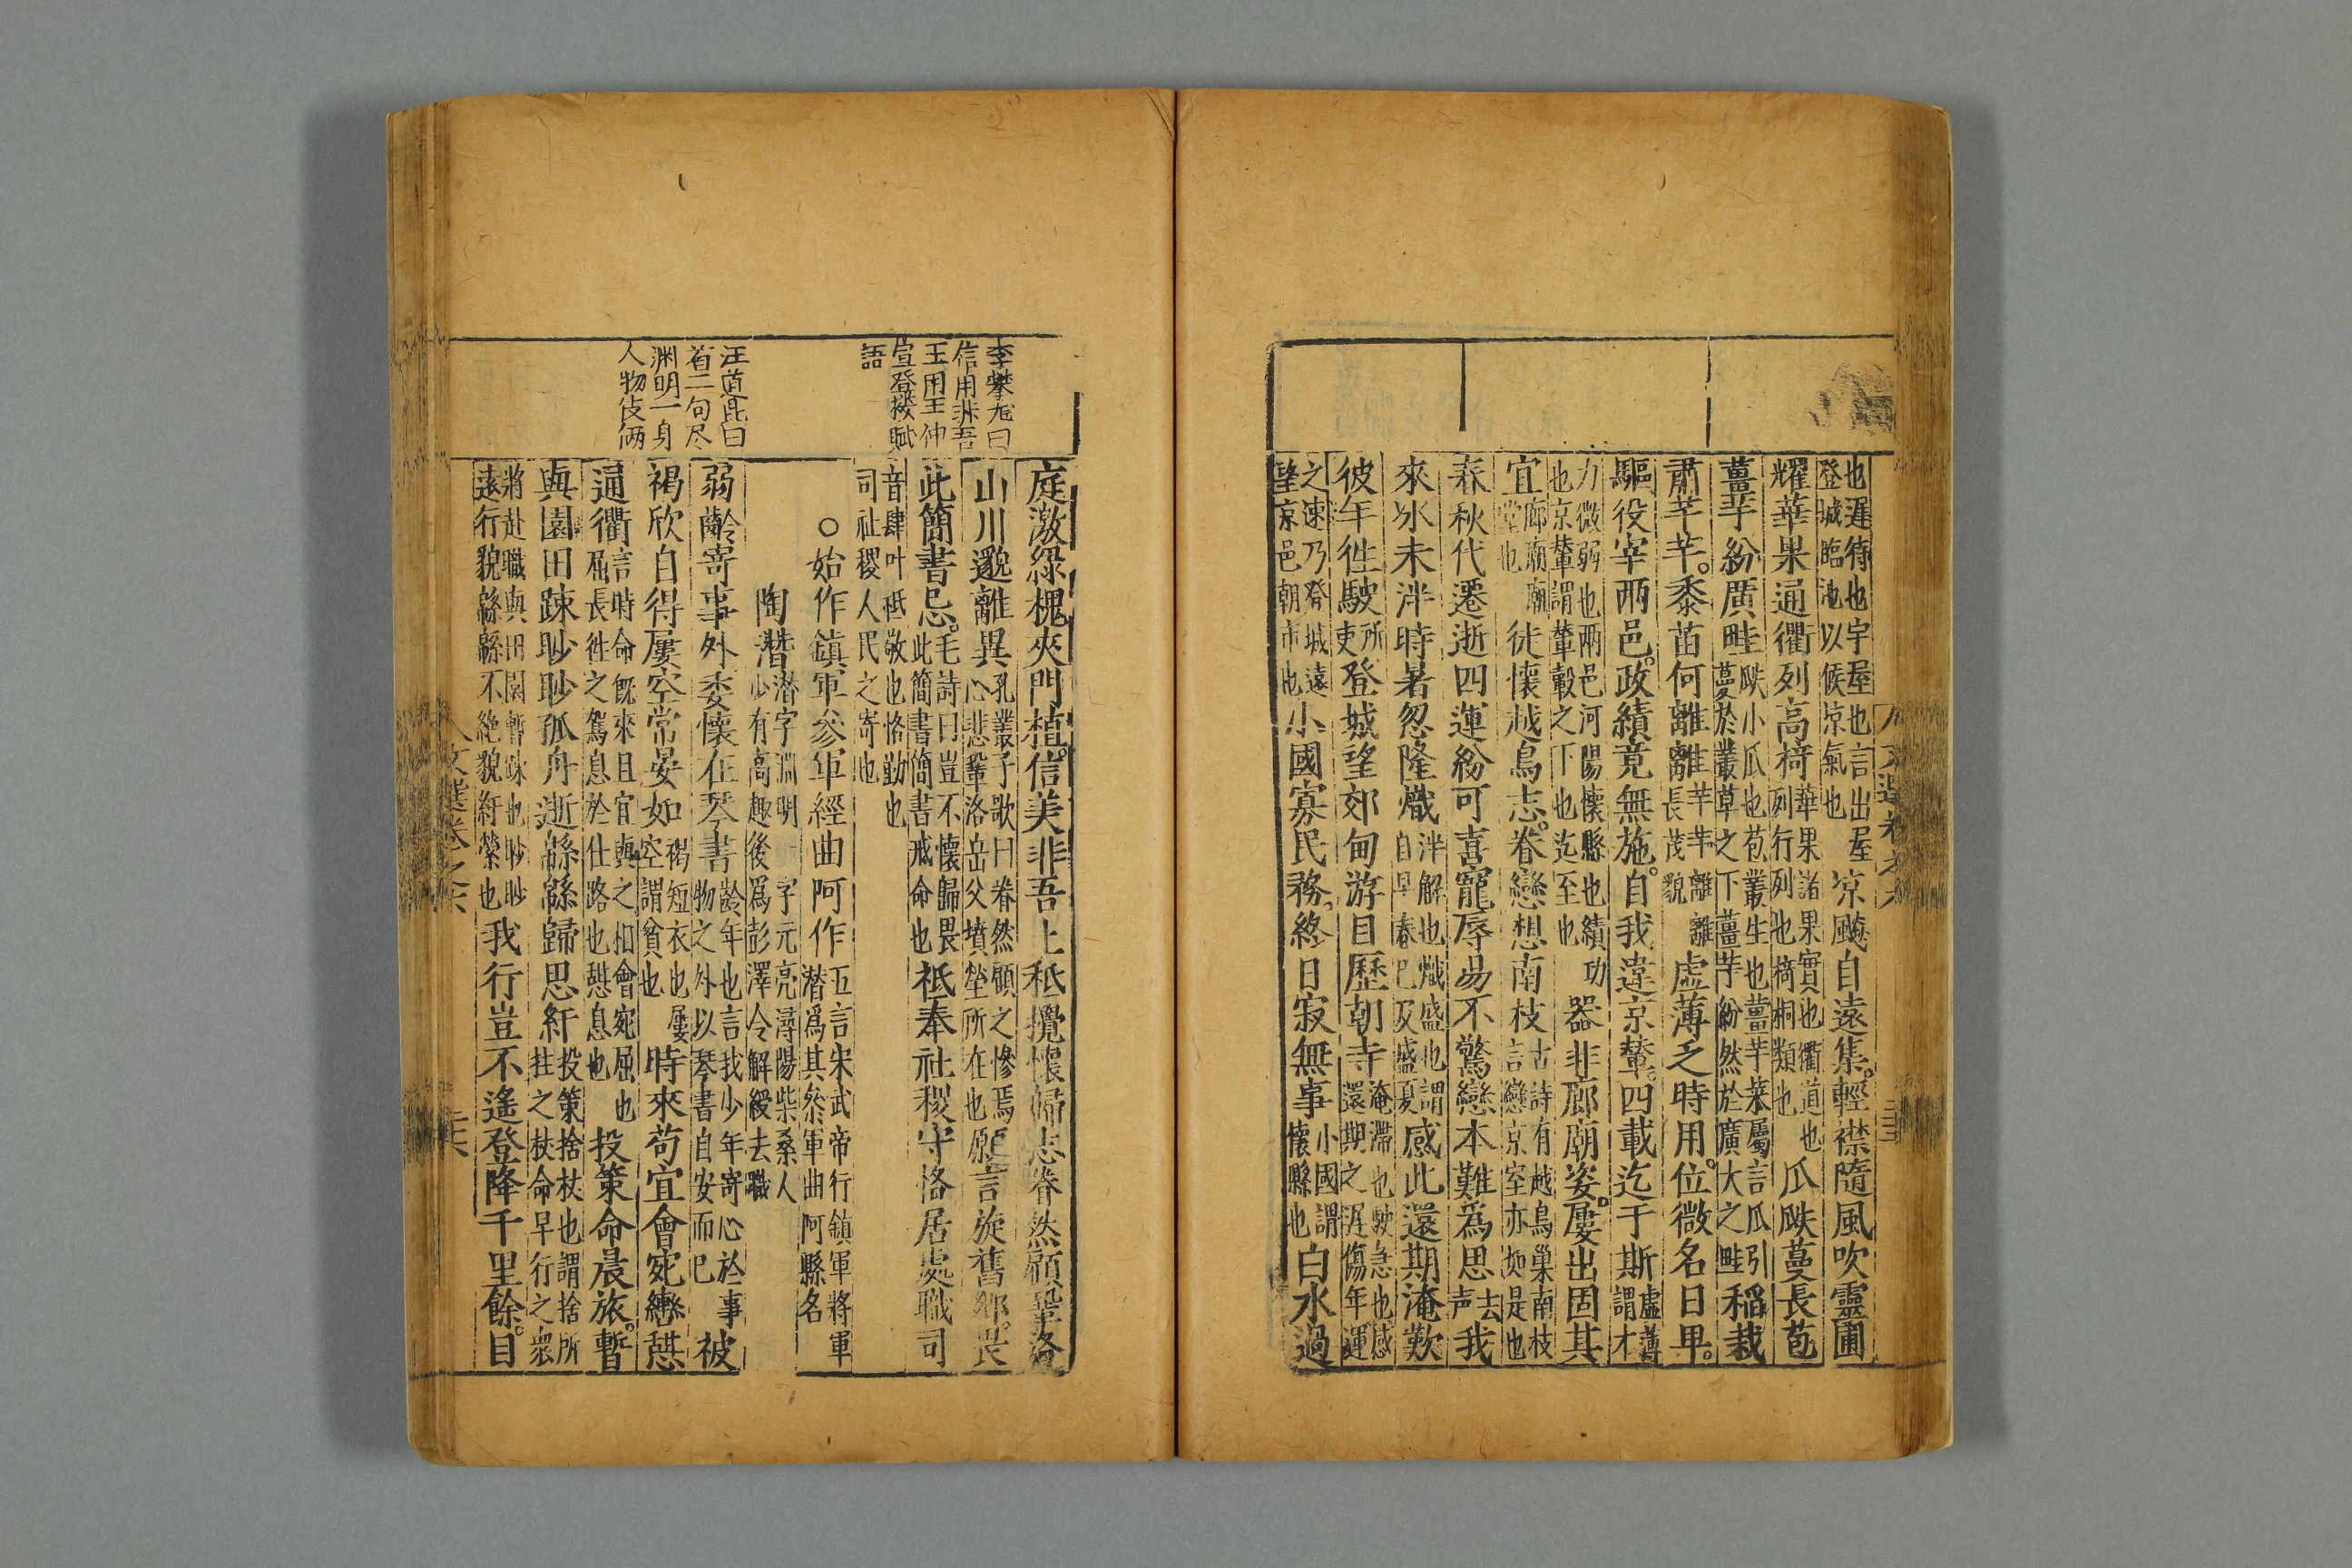 也遲待也宇屋也言出屋登城臨池以候凉氣也凉飈自遠集。輕襟隨風吹靈圃
耀華果通衢列高椅華果諸果實也衢道也列行列也椅桐類也瓜瓞蔓長苞
薑芋紛廣畦瓞小瓜也苞叢生也薑芋菜屬言瓜引蔓於叢草之下薑芋紛然於廣大之畦稻栽
肅芊芊。黍苗何離離芊芊離離長茂貌虚薄乏時用。位微名日卑。
驅役宰兩邑。政績竟無施。自我違京輦。四載迄于斯虛薄謂才
力微弱也兩邑河陽懷縣也績功也京輦謂輦轂之下也迄至也器非廊廟姿。屢出固其
宜廊廟廟堂也徒懷越鳥志。眷戀想南枝古詩有越鳥巢南枝言戀京室亦如是也
春秋代遷逝四運紛可喜寵辱易不驚戀本難為思去声我
來氷未泮時暑忽隆熾泮解也熾盛也謂自早春巳及盛夏感此還期淹歎
彼年徃駛所吏登城望郊甸游目歷朝寺淹滯也駛急也感還期之遲傷年運
之速乃登城遠望京邑朝市也小國寡民務。終日寂無事小國謂懷縣也白水過
文選卷之六
李攀龙曰
信用非吾
土用王仲
宣登楼賦
語
庭激綠槐夾門植。信美非吾土秪攪懷歸志眷然顧鞏洛
山川邈離異孔叢子歌曰眷然顧之慘焉心悲鞏洛岳父墳塋所在也願言旋舊鄉。畏
此簡書忌。毛詩曰豈不懷歸畏此簡書簡書戒命也祗奉社稷守恪居處職司
音肆叶祗敬也恪勤也司社稷人民之寄也
○始作鎮軍參軍經曲阿作五言宋武帝行鎮軍將軍潜爲其叅軍曲阿縣名
陶潜潜字淵明字元亮潯陽柴桑人少有高趣後爲彭澤令解綬去職
汪道昆曰
首二句尽
渊明一身
人物伎俩
弱齡寄事外委懷在琴書齡年也言我少年寄心於事物之外以琴書自安而巳被
褐欣自得屢空常晏如褐短衣也屢空謂貧也時來苟宜會宛轡憇
通衢言時命既來且宜與之相會宛屈也屈長徃之駕息於仕路也憇息也投策命晨旅。暫
與園田踈眇眇孤舟逝緜緜歸思紆投策捨杖也謂捨所拄之杖命早行之衆
將赴職與田園暫踈也眇眇遠行貌緜緜不絶貌紆縈也我行豈不遙登降千里餘。目
文選卷之六